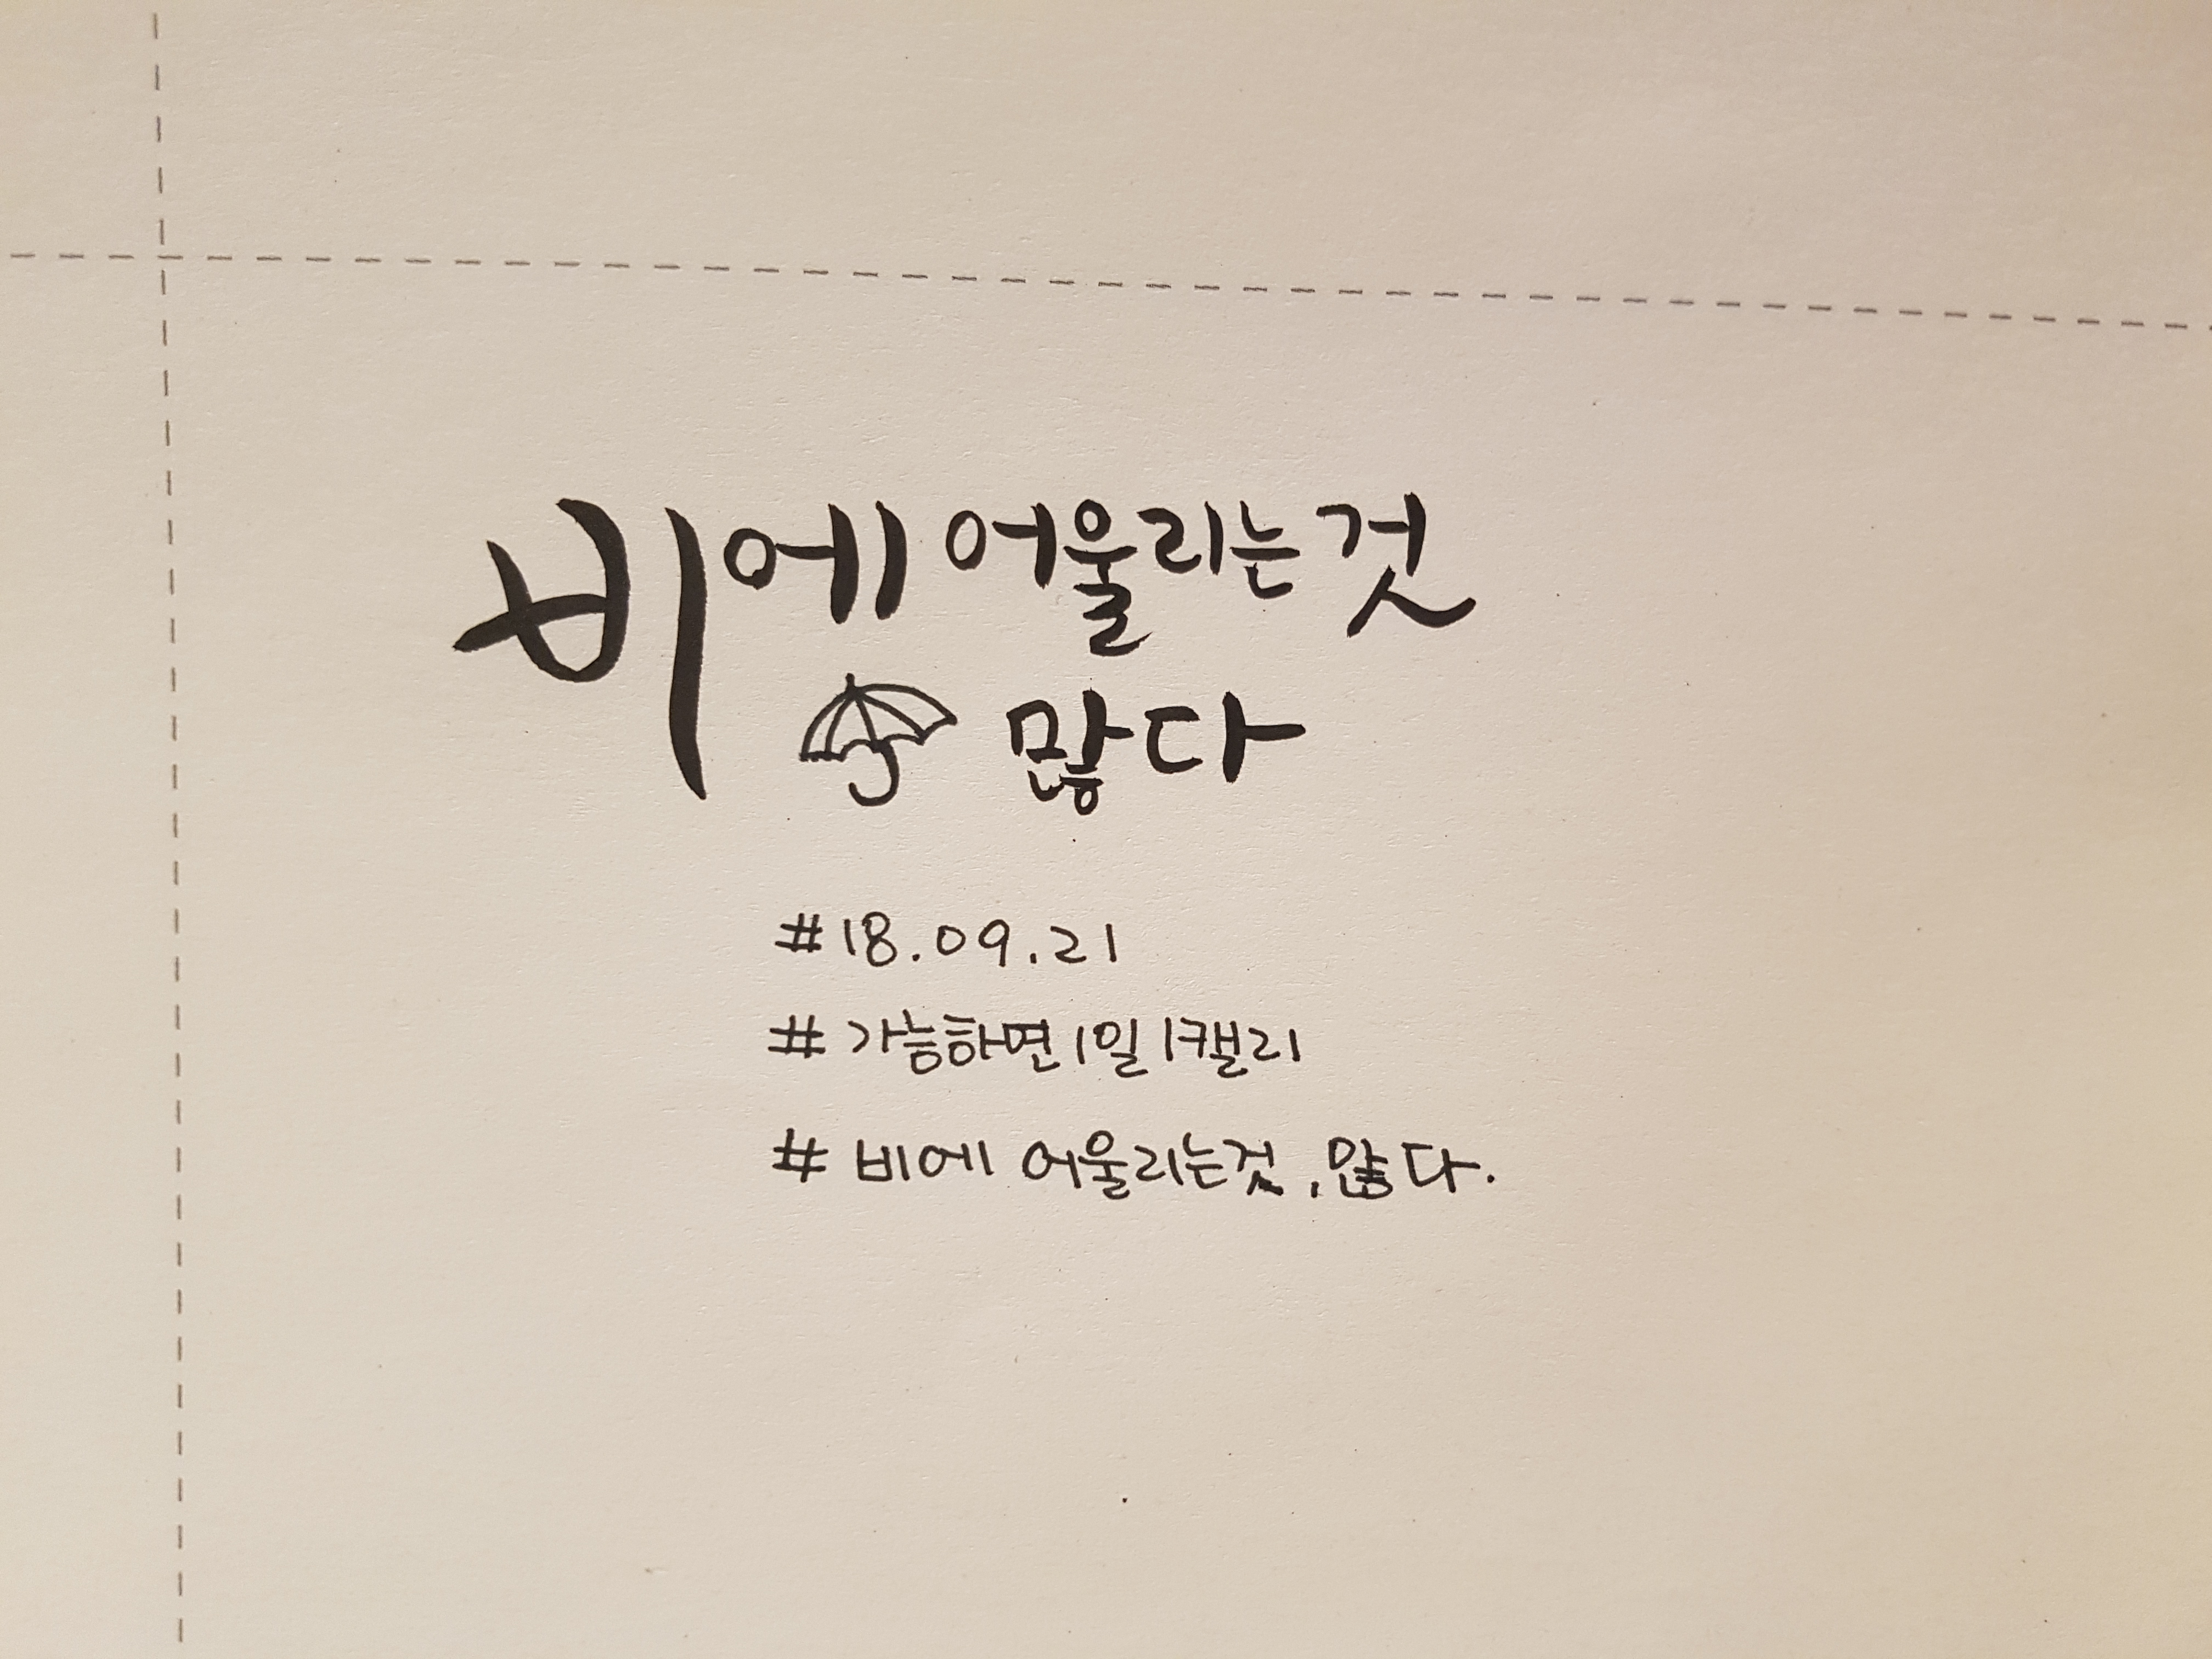 비에 어울리는 것
많다
#18.09.21
# 가능하면 1일 1캘리
# 비에 어울리는것, 많다.